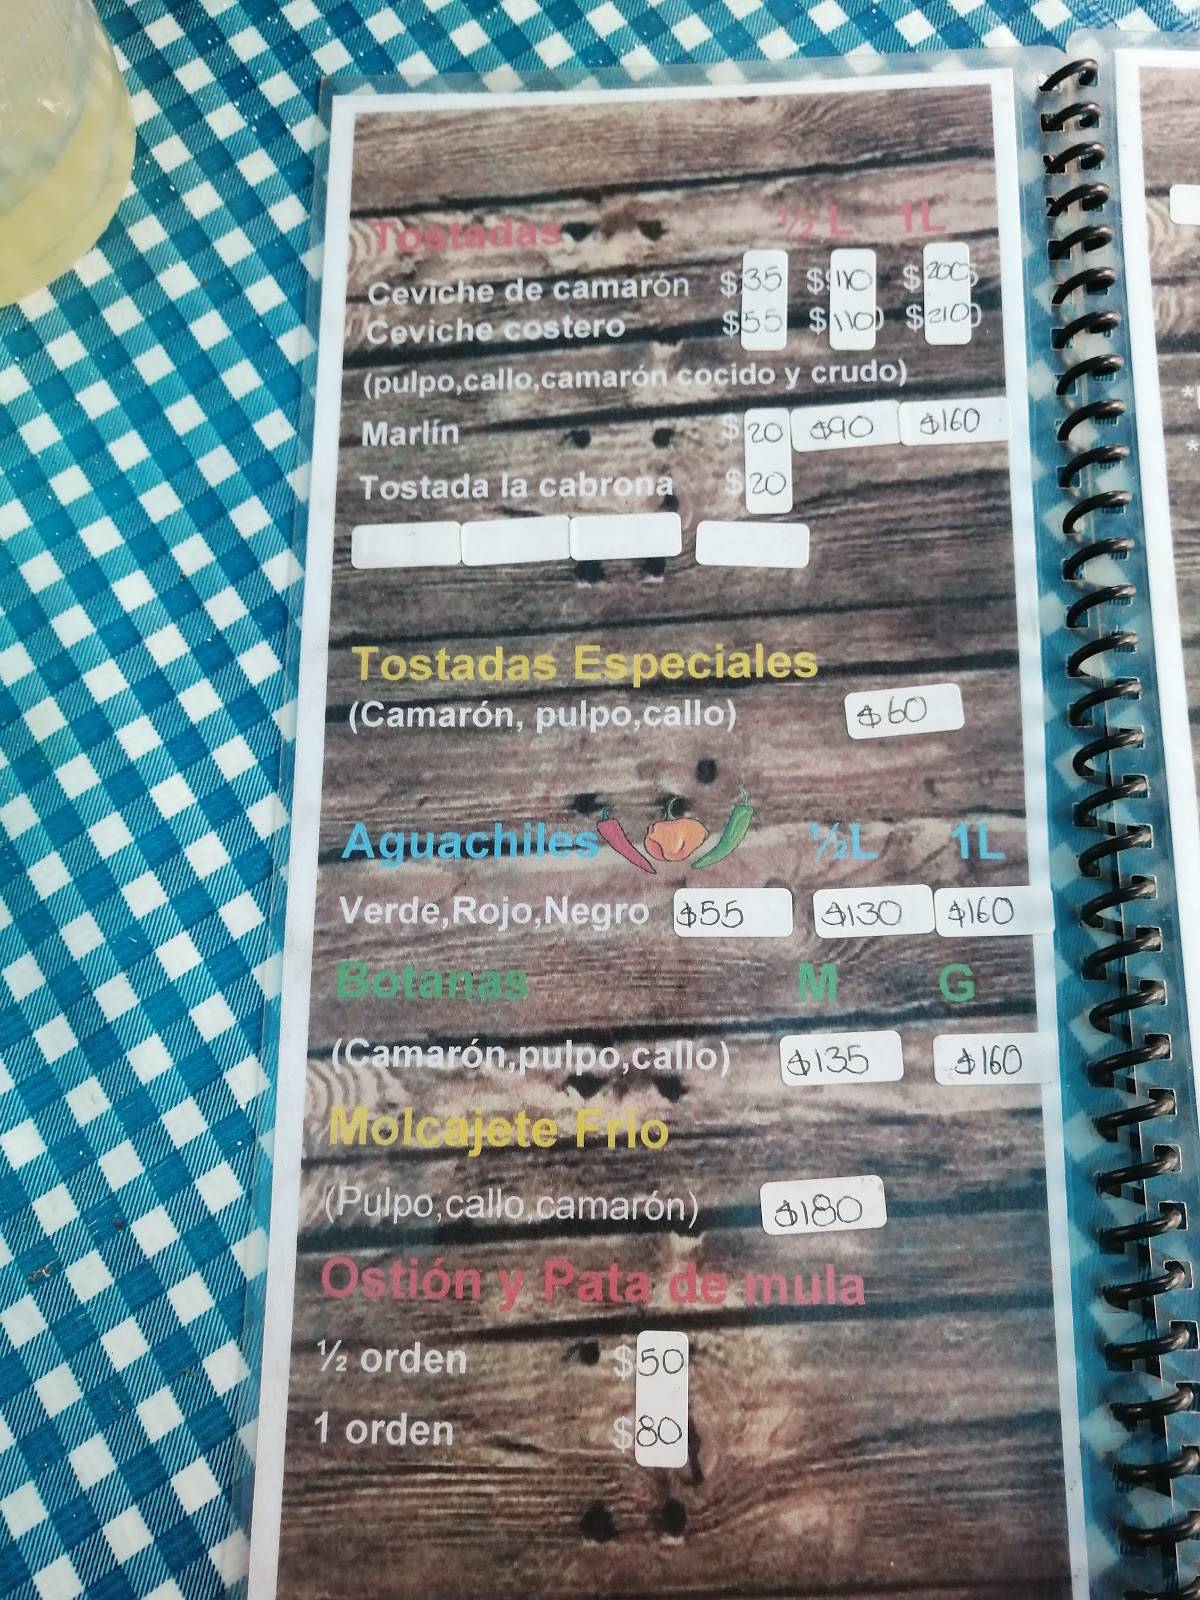 Tostadas ½ L 1L
Ceviche de camarón $35 $110 $200
Ceviche costero $55 $110 $210
(pulpo,callo,camarón cocido y crudo)
Marlín $20 $90 $160
Tostada la cabrona $20
Tostadas Especiales
(Camarón, pulpo,callo) $60
Aguachiles ½L 1L
Verde,Rojo,Negro $55 $130 $160
Botanas M G
(Camarón,pulpo,callo) $135 $160
Molcajete Frio
(Pulpo,callo,camarón) $180
Ostión y Pata de mula
½ orden $50
1 orden $80